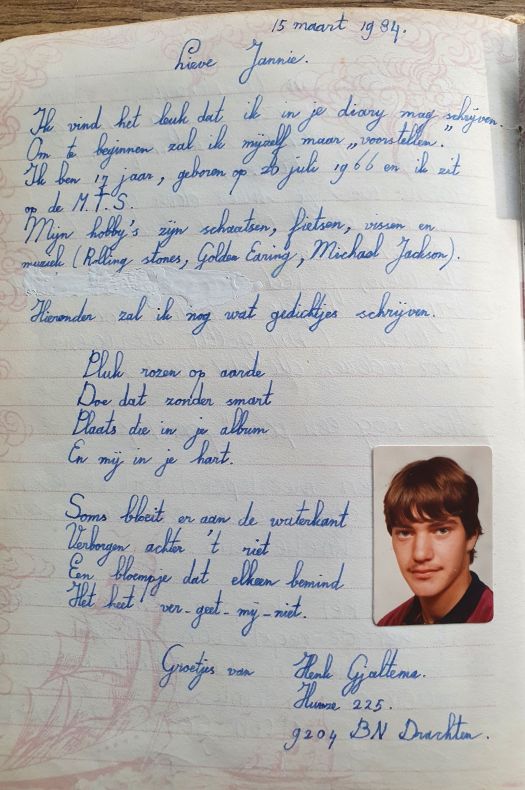 15 maart 1984.
Lieve Jannie.
Ik vind het leuk dat ik in je diary mag schrijven.
Om te beginnen zal ik mijzelf maar „voorstellen."
Ik ben 17 jaar, geboren op 26 juli 1966 en ik zit
op de M.T.S.
Mijn hobby's zijn schaatsen, fietsen, vissen en
muziek (Rolling stones, Golden Earing, Michael Jackson).
Hieronder zal ik nog wat gedichtjes schrijven.
Pluk rozen op aarde
Doe dat zonder smart
Plaats die in je album
En mij in je hart.
Soms bloeit er aan de waterkant
Verborgen achter 't riet
Een bloempje dat elkeen bemind
Het heet ver-geet-mij-niet.
Groetjes van Henk Gjaltema.
Hunze 225.
9204 BN Drachten.